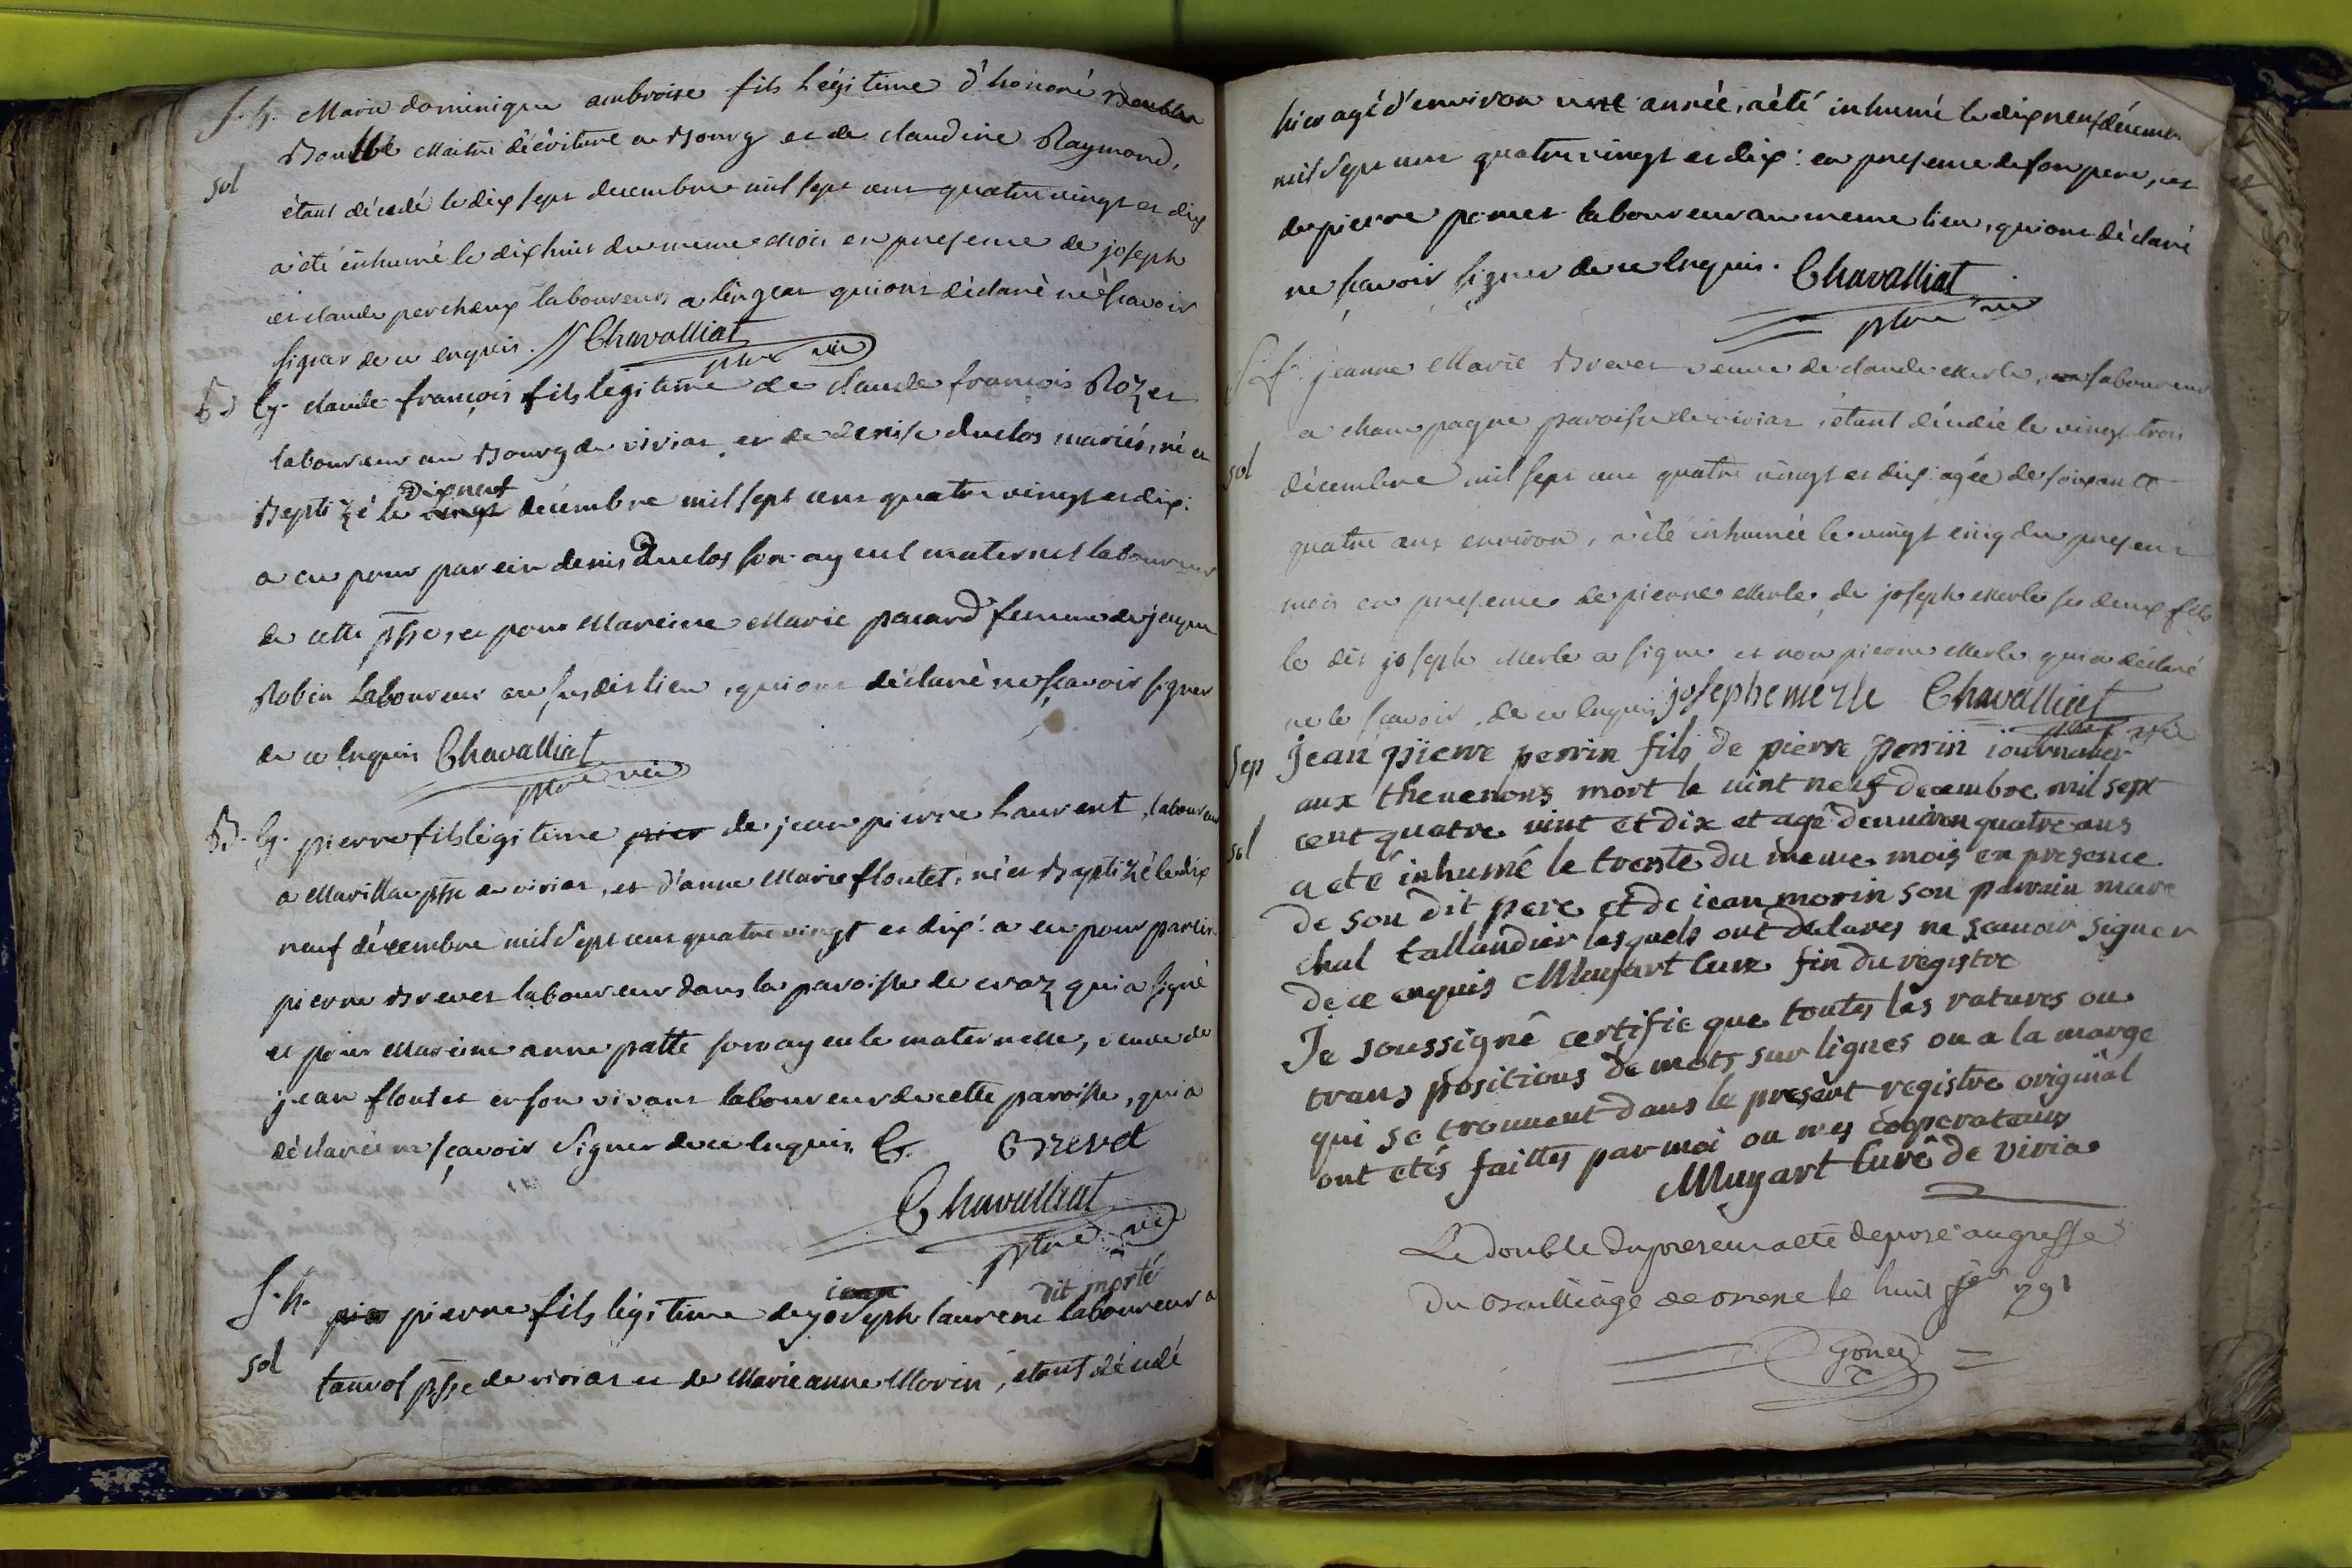 S. h. Marie dominique ambroise fils légitime d'honoré
Maitre d'écriture a Bourg et de claudine Raymond,
sol
étant décédé le dix sept decembre mil sept cent quatre vingt et dix
a été inhumé le dix huit du meme mois en presence de joseph
et claude percheux laboureurs a lingeat qui ont déclaré ne scavoir
signer de ce enquis. Chavalliat
ptre vic
B. lg. claude françois fils légitime de claude francois Rozet
laboureur au Bourg de viriat et de denise duclos mariés, né et
dix neuf
Baptizé le vingt décembre mil sept cent quatre vingt et dix:
a eu pour parein denis Duclos son ayeul maternel laboureur
de cette psse, et pour Mareine Marie pacard femme de jaque
Robin Laboureur au susdit lieu, qui ont déclaré ne scavoir signer
de ce enquis Chavalliat
ptre vic
B. lg. pierre fils légitime pier de jean pierre Laurent, laboureur
a Marillac psse de viriat, et d'anne Marie floutet, né et Baptizé le dix
neuf décembre mil sept cent quatre vingt et dix: a eu pour parein
pierre Brevet laboureur dans la paroisse de craz qui a signé
et pour Mareine anne patte son ayeule maternelle, veuve de
jean floutet en son vivant laboureur de cette paroisse, qui a
déclaré ne sçavoir signer de ce enquis. Brevet
Chavalliat
ptre vic
jean dit morté
S. h. pier pierre fils légitime de joseph laurent laboureur a
sol
tanvol psse de viriat et de Marie anne Morin, étant décédé
hier agé d'environ une année, a été inhumé le dix neuf décembre
mil sept cent quatre vingt et dix: en presence de son pere, et
de pierre laboureur au meme lieu, qui ont déclaré
ne scavoir signer de ce enquis. Chavalliat
ptre vic
S. f. jeanne Marie Brevet veuve de claude Merle, laboureur
a champagne paroisse de viriat, étant décédée le vingt trois
sol
décembre mil sept cent quatre vingt et dix: agée de soixante
quatre ans environ, a été inhumée le vingt cinq du present
mois en presence de pierre Merle, de joseph Merle ses deux fils
le dit joseph Merle a signé et non pierre Merle qui a déclaré
ne le scavoir, de ce enquis josephe merle Chavalliat
ptre vic
Sep jean pierre perrin fils de pierre perrin iournalier
aux thenenons mort le vint neuf decembre mil sept
sol cent quatre vint et dix et agé denuiron quatre ans
a eté inhumé le trente du meme mois en presence
de son dit pere et de iean morin son parrain mare
chal tallandier lesquels ont declares ne scauoir signer
de ce enquis Mugart Curé fin du registre
Je soussigné certifie que toutes les ratures ou
trans positions de mots sur lignes ou a la marge
qui se trouuent dans le present registre original
ont etés faittes par moi ou mes cooperateurs
Mugart Curé de viria
Le double du present a eté deposé au greffe
du Bailliage de Bresse le huit jer 1791